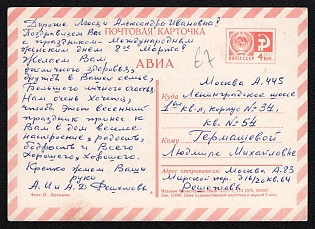 Дорогие Люся и Александра Ивановна!
Поздравляем Вас
с праздником Международным
женским днём 8ое Марта!
Желаем Вам
отличного здоровья,
дружбы в Вашей семье,
большого личного счастья.
Нам очень хочется,
чтоб этот весенний
праздник принес к
Вам в дом веселое
настроение, радость,
бодрость и Всего
хорошего, хорошего.
Крепко жмем Ваши
руки
А.И и А.Ф
Фото И.
ПОЧТОВАЯ КАРТОЧКА
АВИА
ПОЧТА СССР
4 КОП
67
Куда Москва А.445
Ленинградское шоссе
кв-л, корпус № 34,
кв. № 54
Кому Гермашевой
Людмиле Михайловне
Адрес отправителя: Москва А.83
Мирской пер. д. 16/20 кв. 64